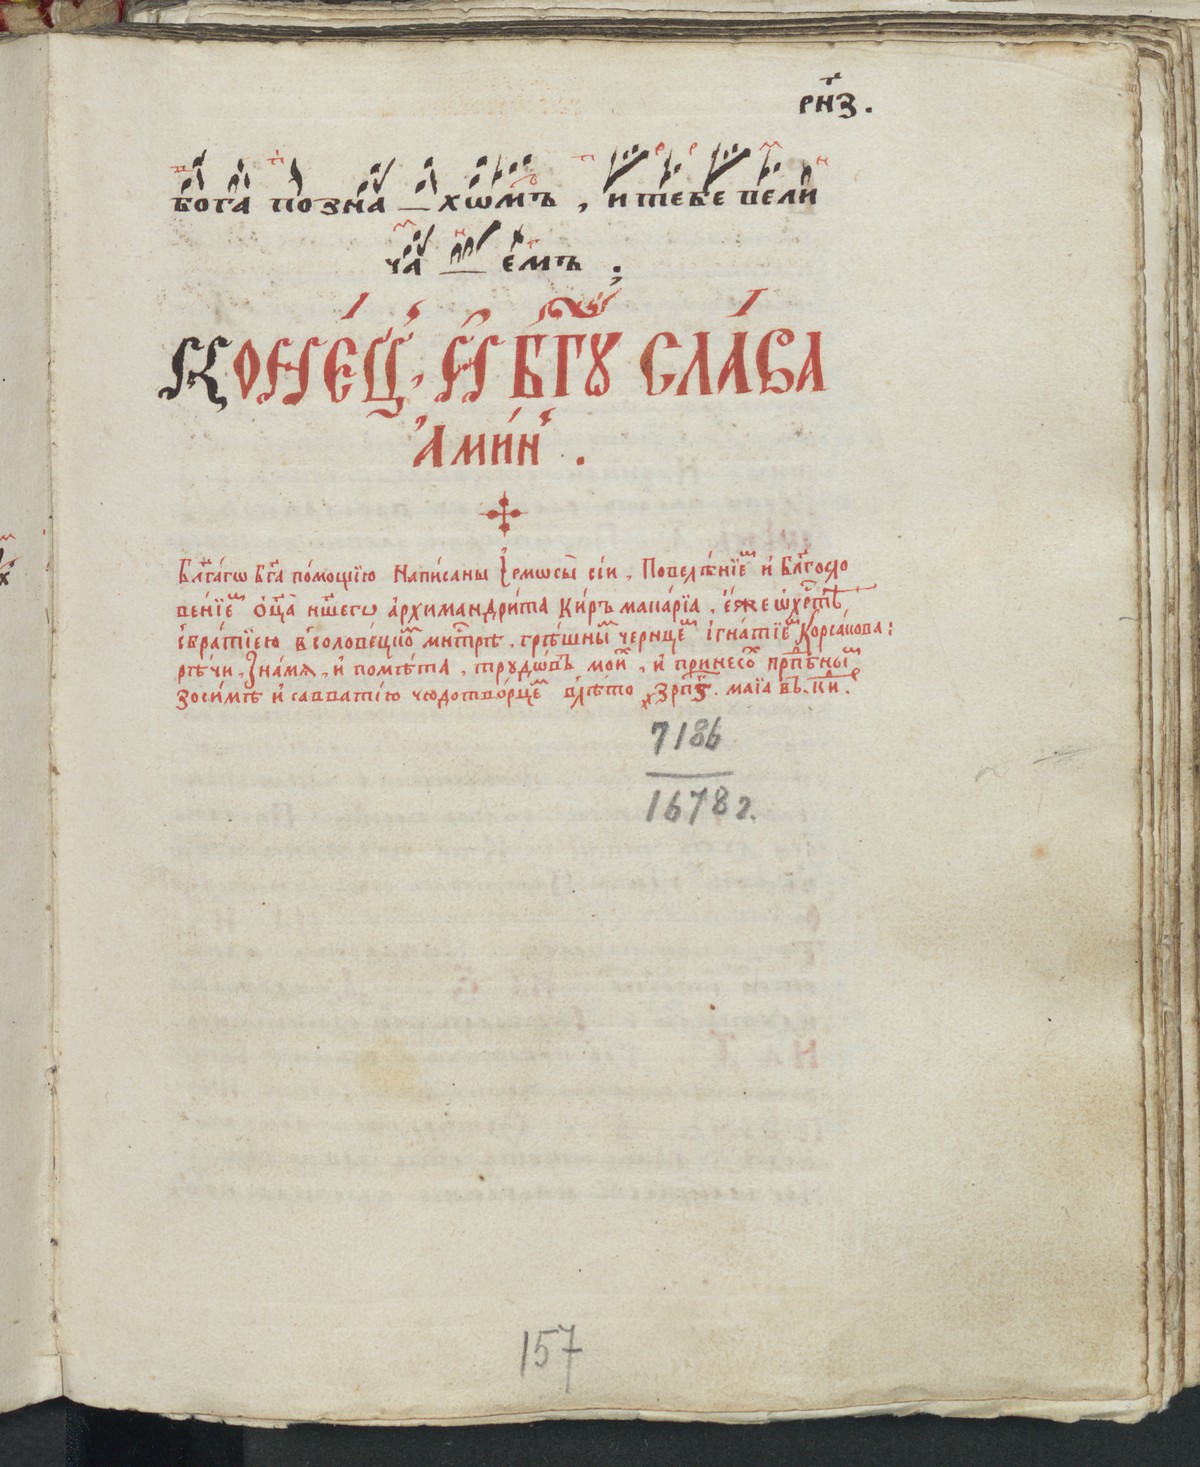 рн҃з.
Бога позна_хѡмъ, и тебе вели
ча_емъ ;
Коне́цъ, И҆ Бг҃ꙋ сла́ва
А҆ми́нь.
Бл҃га́гѡ Бг҃а по́мощїю написаны І҆рмосы̀ сі́и, Повелѣ́нїеⷨ и҆ бл҃госло
ве́нїеⷨ ѻ҆ц҃а̀ нш҃егѡ а҆рхимандри́та Ки́ръ мака́рїа, є҆́же ѡ҆ хрⷭ҇тѣ̀
с̾бра́тїею в̾солове́цкоⷨ мнⷭ҇трѣ̀, грѣ́шныⷨ чернце́ⷨ і҆гна́тїеⷨ Корса́кова:
рѣ́чи, Зна́мѧ, и҆ помѣ́та, трꙋдѡ́въ мои́ⷯ, и҆ принесо́ⷯ прпⷣбныⷨ
зоси́мѣ и҆ савва́тїю чюдотво́рцеⷨ в̾лѣ́то ҂зрп҃ѕ. маїа въ. к҃и.
7186
1678 г.
157